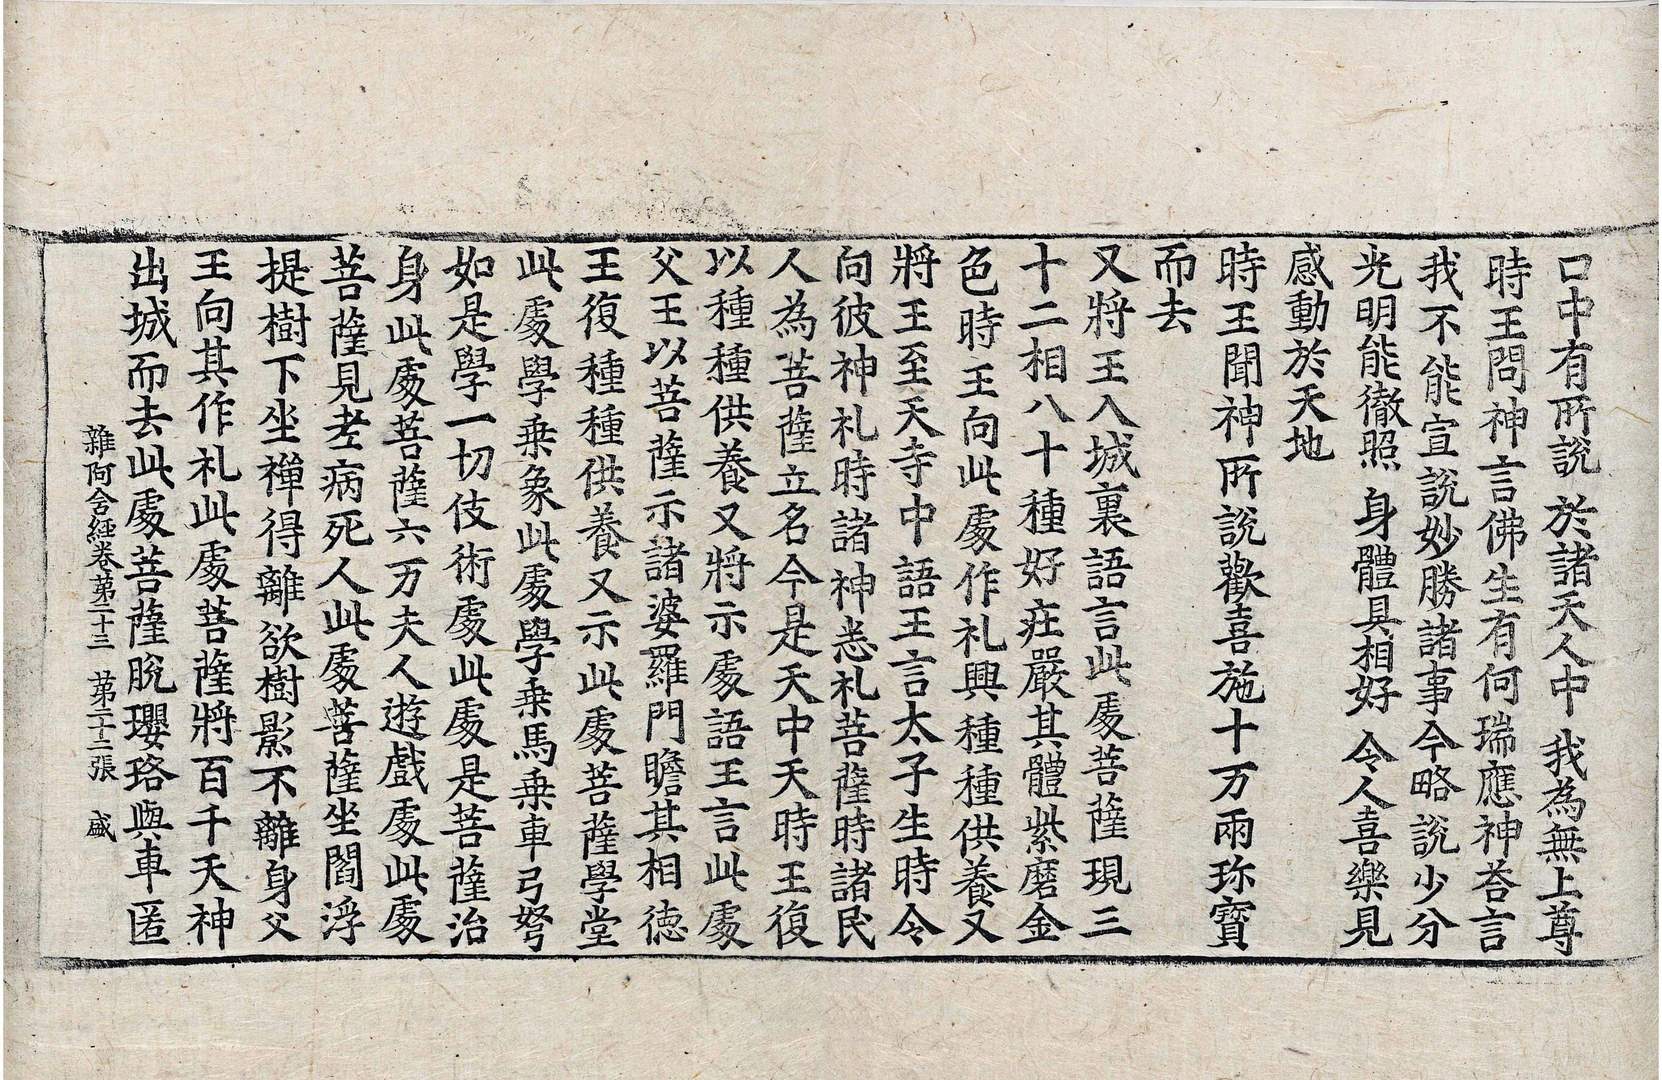 口中有所說 於諸天人中 我為無上尊
時王問神言佛生有何瑞應神荅言
我不能宣說妙勝諸事今略說少分
光明能徹照 身體具相好 令人喜樂見
感動於天地
時王聞神所說歡喜施十万兩珎寶
而去
又將王入城裏語言此處菩薩現三
十二相八十種好庄嚴其體紫磨金
色時王向此處作礼興種種供養又
將王至天寺中語王言太子生時令
向彼神礼時諸神悉礼菩薩時諸民
人為菩薩立名今是天中天時王復
以種種供養又將示處語王言此處
父王以菩薩示諸婆羅門瞻其相德
王復種種供養又示此處菩薩學堂
此處學乗象此處學乗馬乗車弓弩
如是學一切伎術處此處是菩薩治
身此處菩薩六万夫人遊戲處此處
菩薩見老病死人此處菩薩坐閻浮
提樹下坐禪得離欲樹影不離身父
王向其作礼此處菩薩將百千天神
出城而去此處菩薩脫瓔珞與車匿
雜阿含經卷第二十三 第二十二張 盛